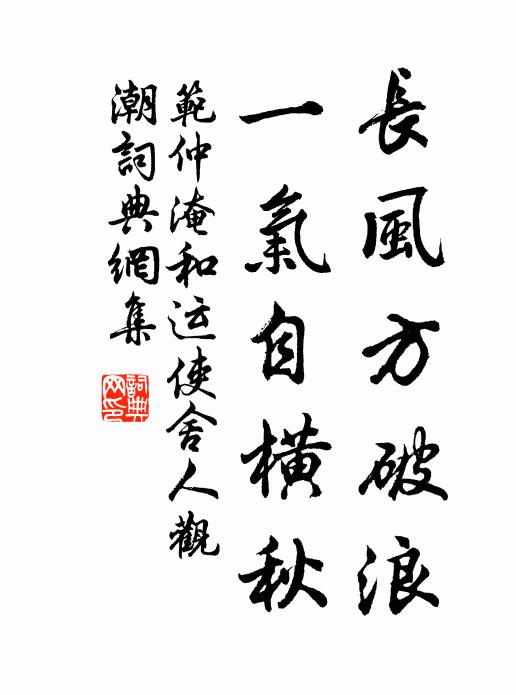 長風方破浪
一氣自橫秋
範仲淹和运使舍人觀
潮詞典網集
詞典
网印